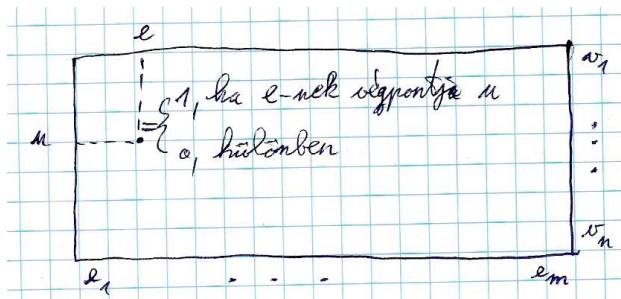 e
v₁
1, ha e-nek végpontja u
u
= {
0, különben
⋮
vₙ
e₁ . . . eₘ